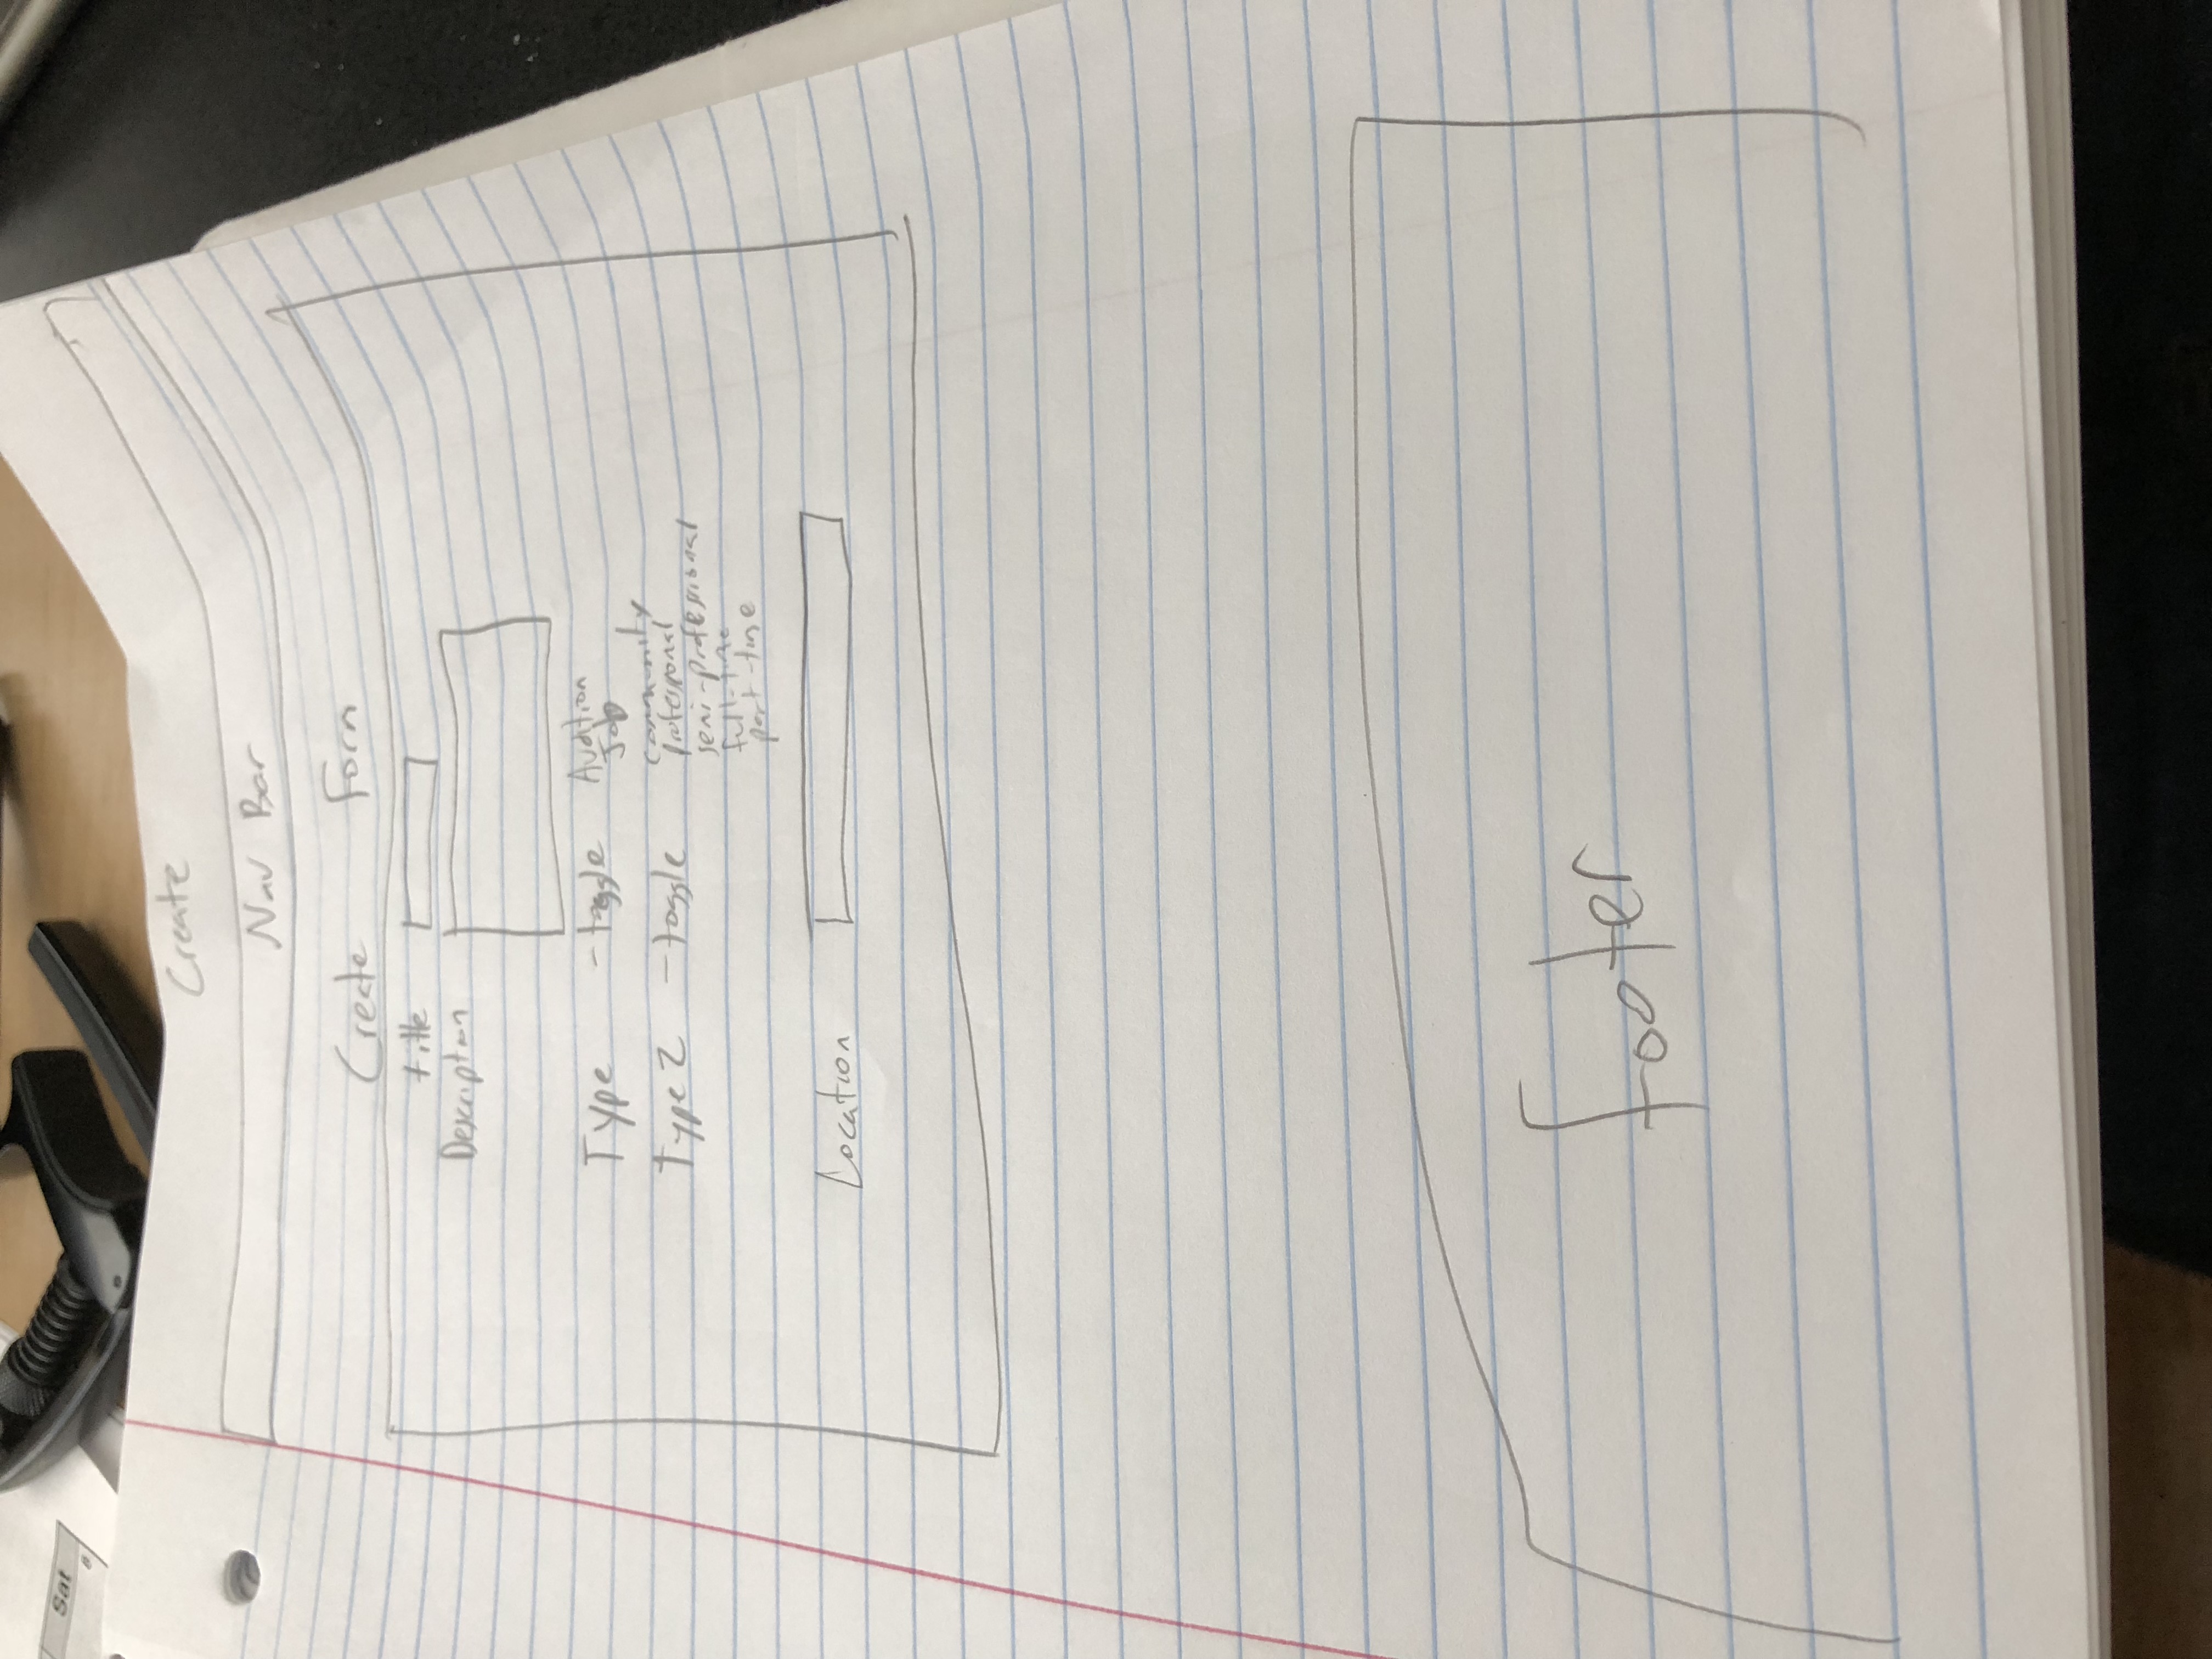 Sat
8
Create
Nav Bar
Create Form
title
Description
Type - toggle Audition
Job
Type 2 - toggle community
professional
semi-professional
full-time
part-time
Location
footer